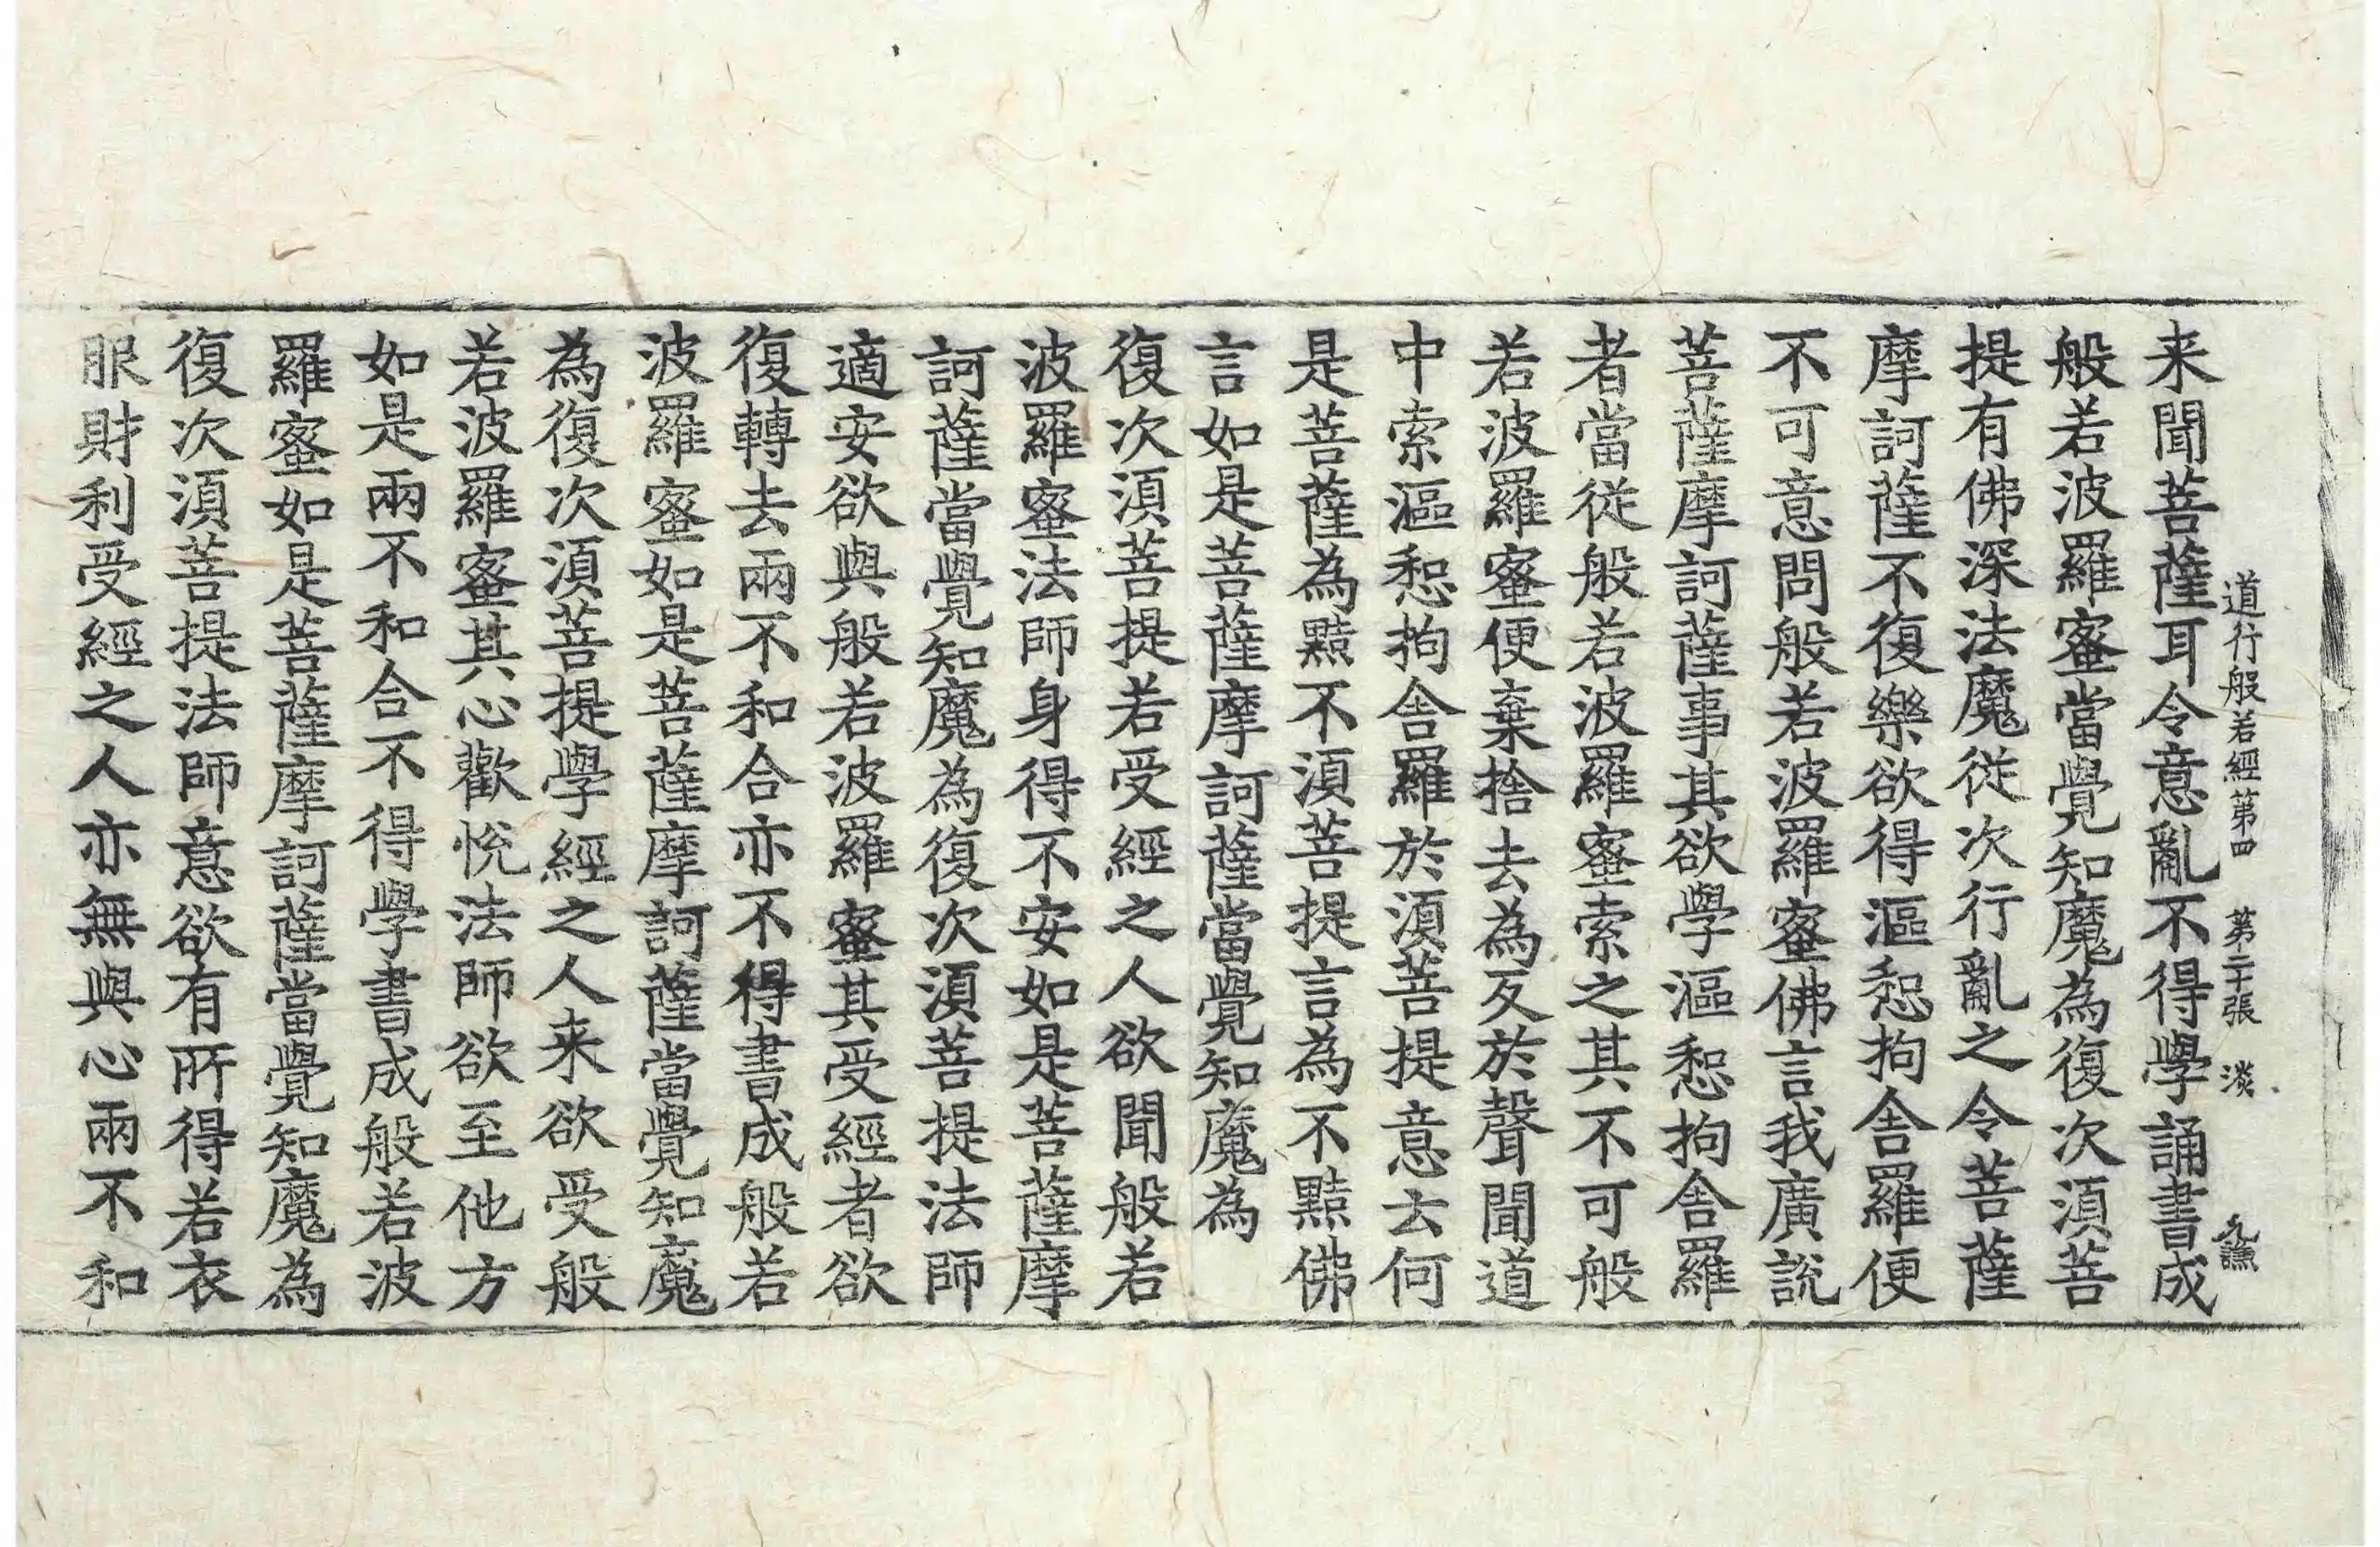 道行般若經第四　第二十張　淡
来聞菩薩耳令意亂不得學誦書成
般若波羅蜜當覺知魔為復次湏菩
提有佛深法魔従次行亂之令菩薩
摩訶薩不復樂欲得漚惒拘舎羅便
不可意問般若波羅蜜佛言我廣說
菩薩摩訶薩事其欲學漚惒拘舎羅
者當従般若波羅蜜索之其不可般
若波羅蜜便棄捨去為反於聲聞道
中索漚惒拘舎羅於湏菩提意云何
是菩薩為黠不湏菩提言為不黠佛
言如是菩薩摩訶薩當覺知魔為
復次湏菩提若受經之人欲聞般若
波羅蜜法師身得不安如是菩薩摩
訶薩當覺知魔為復次湏菩提法師
適安欲與般若波羅蜜其受經者欲
復轉去兩不和合亦不得書成般若
波羅蜜如是菩薩摩訶薩當覺知魔
為復次湏菩提學經之人来欲受般
若波羅蜜其心歡悅法師欲至他方
如是兩不和合不得學書成般若波
羅蜜如是菩薩摩訶薩當覺知魔為
復次湏菩提法師意欲有所得若衣
服財利受經之人亦無與心兩不和